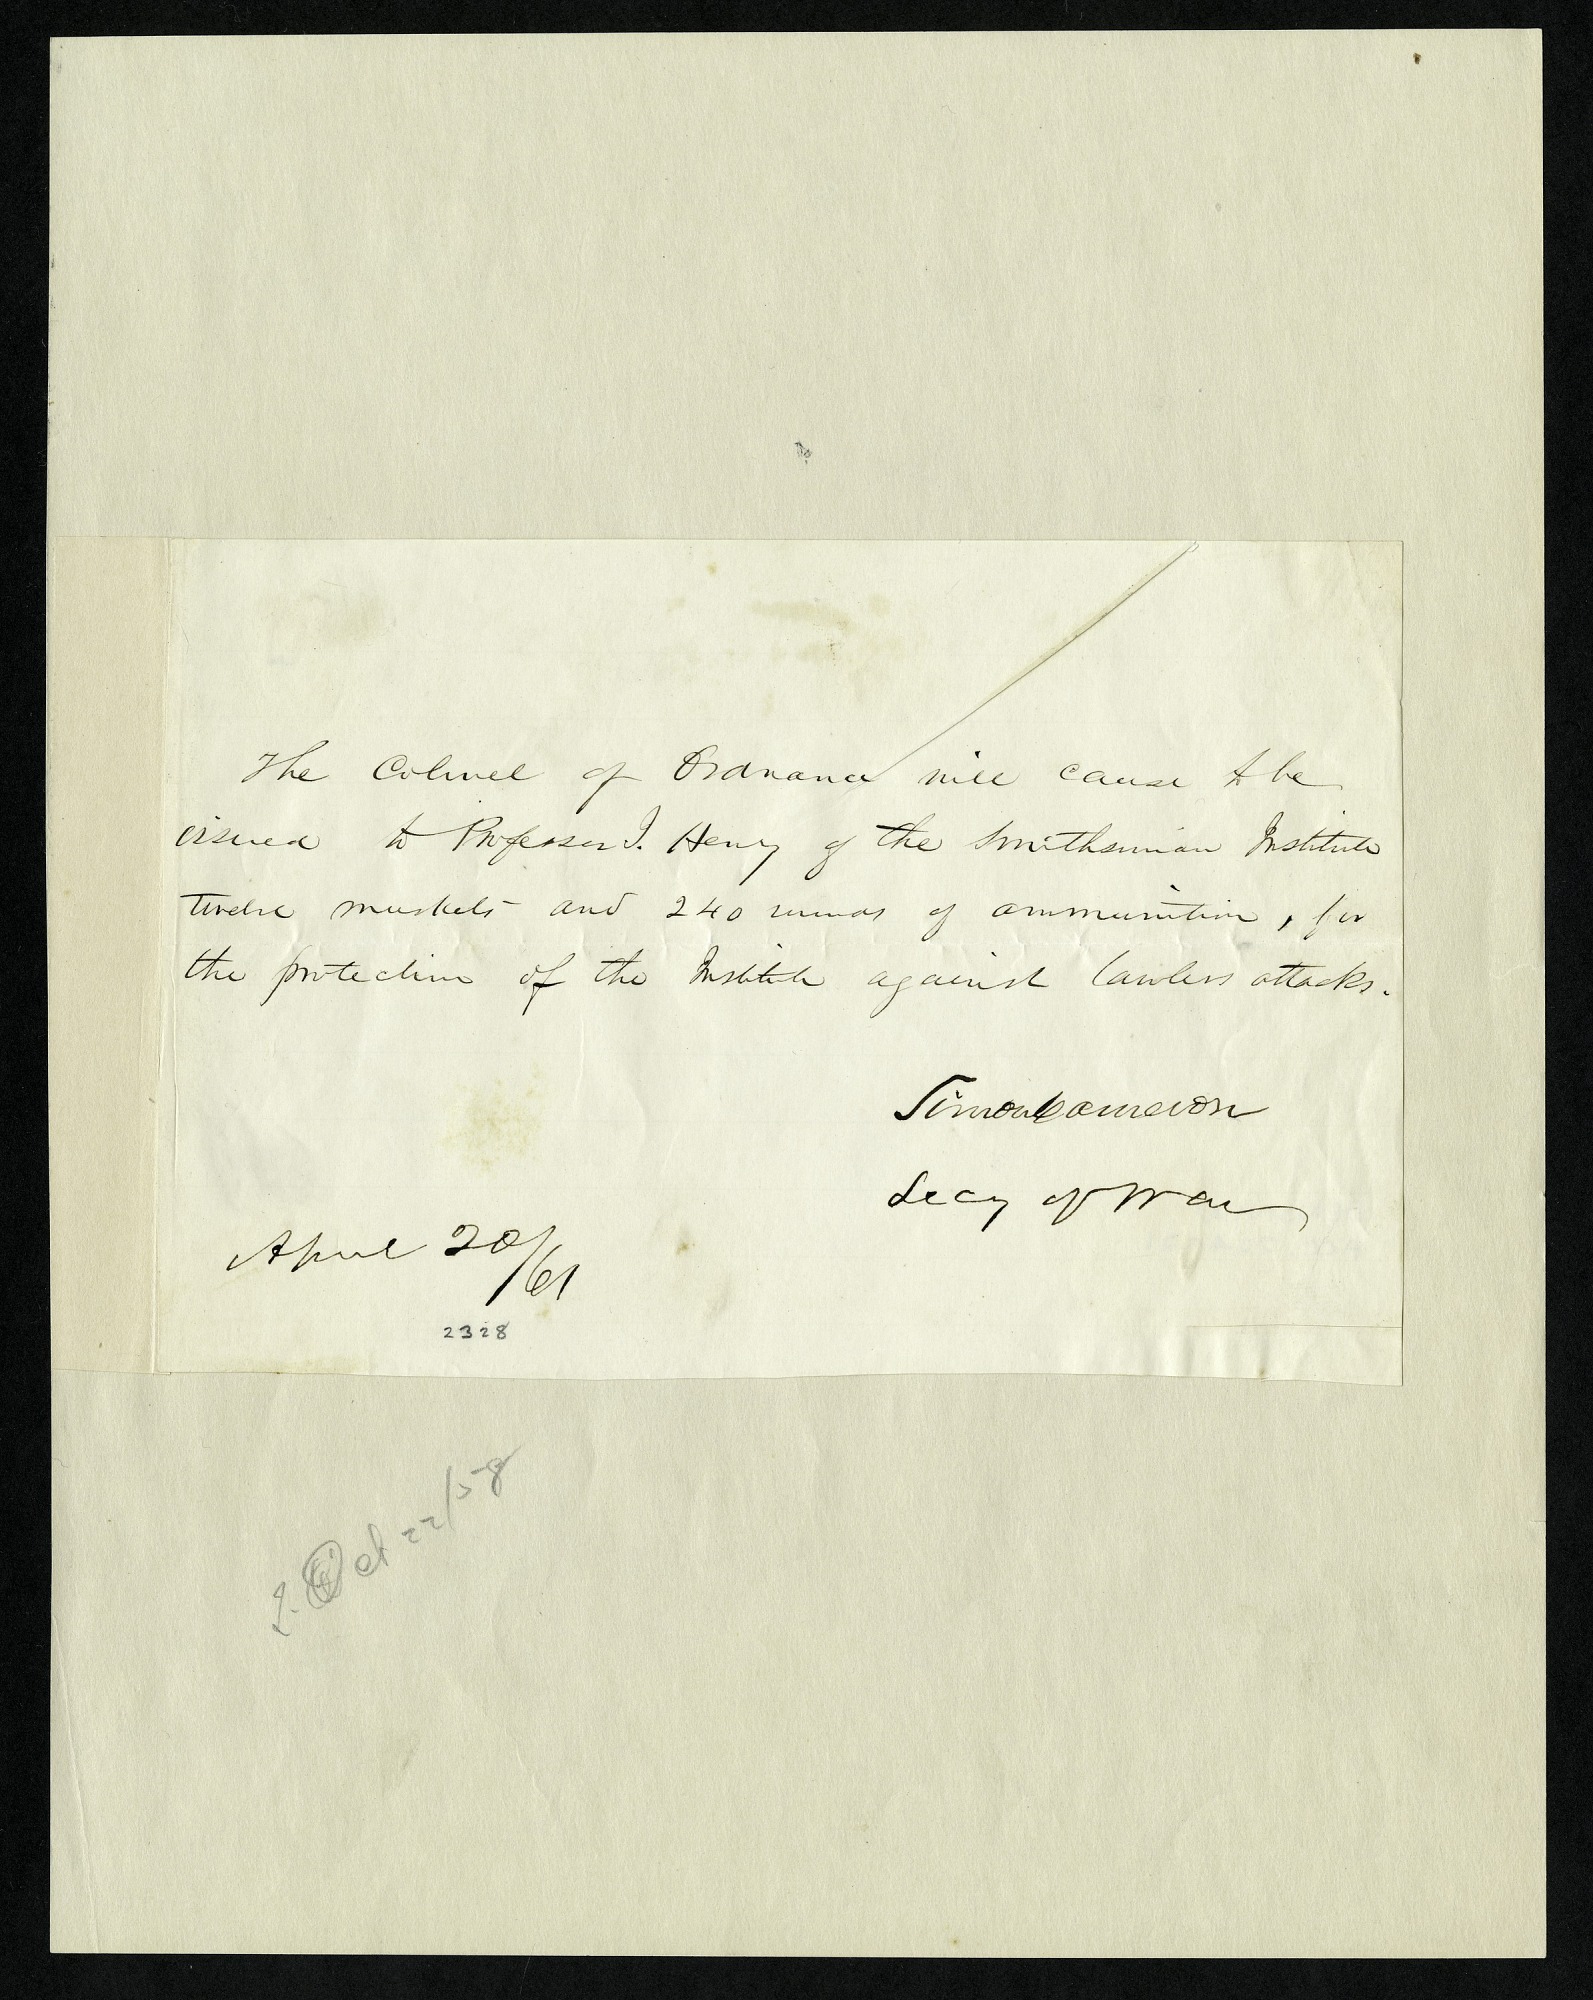 The Colonel of Ordnance will cause to be
issued to Professor J. Henry of the Smithsonian Institute
twelve muskets and 240 rounds of ammunition, for
the protection of the Institute against lawless attacks.
Simon Cameron
Secy of War
April 20/61
2328
Oct 22/58